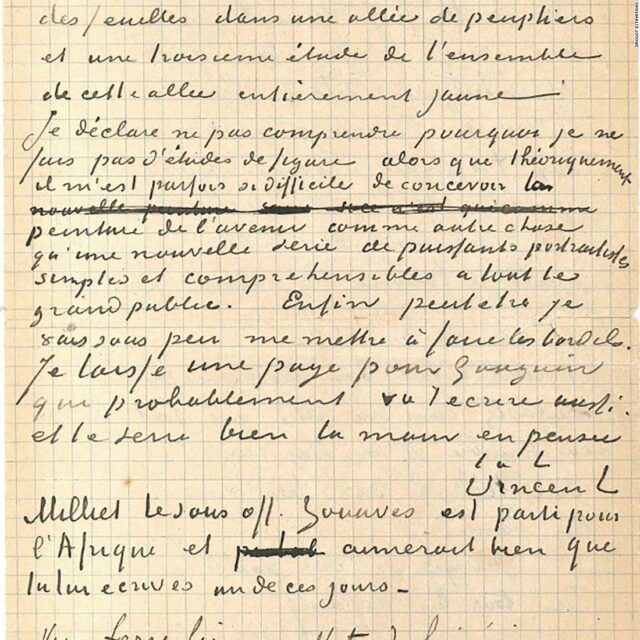 des feuilles dans une allée de peupliers
et une troisieme étude de l'ensemble
de cette allée entièrement jaune
Je déclare ne pas comprendre pourquoi je ne
fais pas d'études de figure alors que théoriquement
il m'est parfois si difficile de concevoir la
nouvelle peinture comme
peinture de l'avenir comme autre chose
qu'une nouvelle serie de puissants portraitistes
simples et comprehensibles a tout le
grand public. Enfin peut etre je
vais sous peu me mettre à faire les bordels.
Je laisse une page pour Gauguin
qui probablement va t'ecrire aussi.
et te serre bien la main en pensee
t. à t.
Vincent
Milliet le sous off. Zouaves est parti pour
l'Afrique et aimerait bien que
tu lui ecrives un de ces jours_